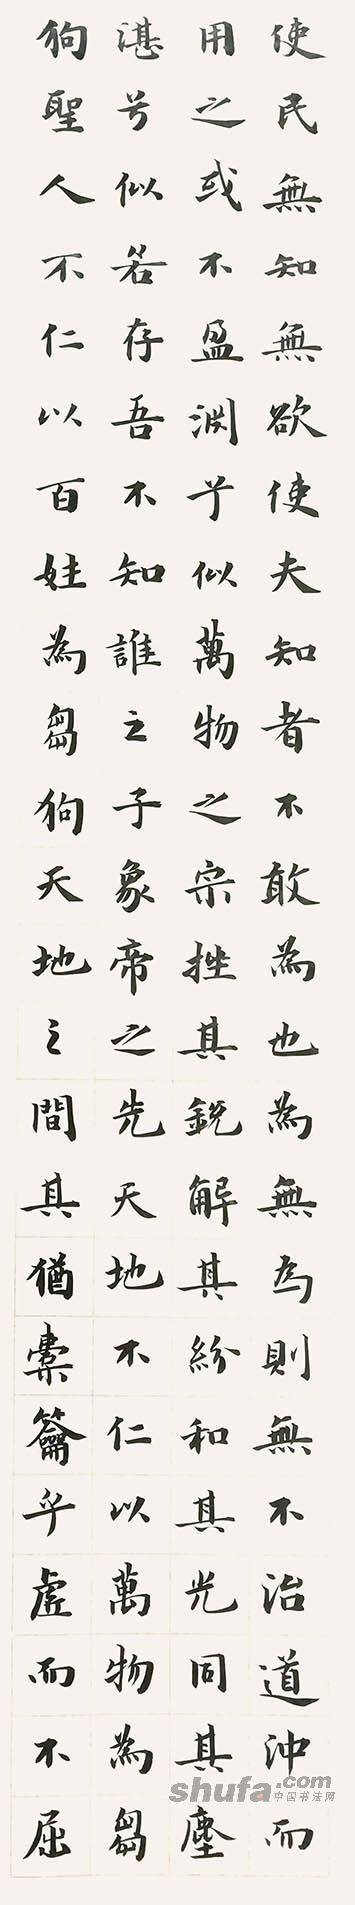 使民無知無欲使夫知者不敢為也為無為則無不治道沖而
用之或不盈淵兮似萬物之宗挫其銳解其紛和其光同其塵
湛兮似若存吾不知誰之子象帝之先天地不仁以萬物為芻
狗聖人不仁以百姓為芻狗天地之間其猶橐籥乎虛而不屈
shufa.com
中国书法网